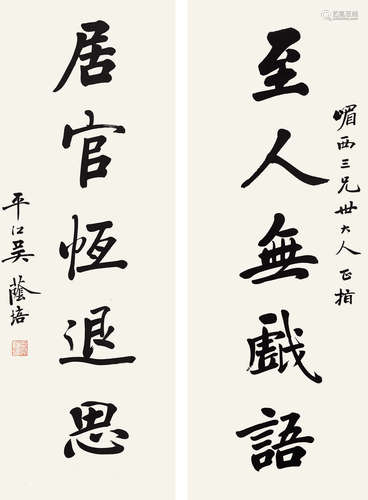 至人無戲語
嵋西三兄世大人正指
居官恆退思
平江吳蔭培